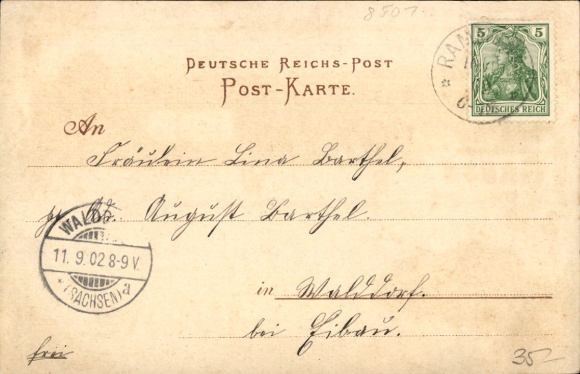 8501-
DEUTSCHE REICHS-POST
POST-KARTE.
RAM
5 5
DEUTSCHES REICH
An
Fräulein Lina Barthel,
August Barthel.
WALD
11. 9. 02 8-9 V.
*(SACHSEN) a
in Walddorf.
bei Eibau.
frei
35-